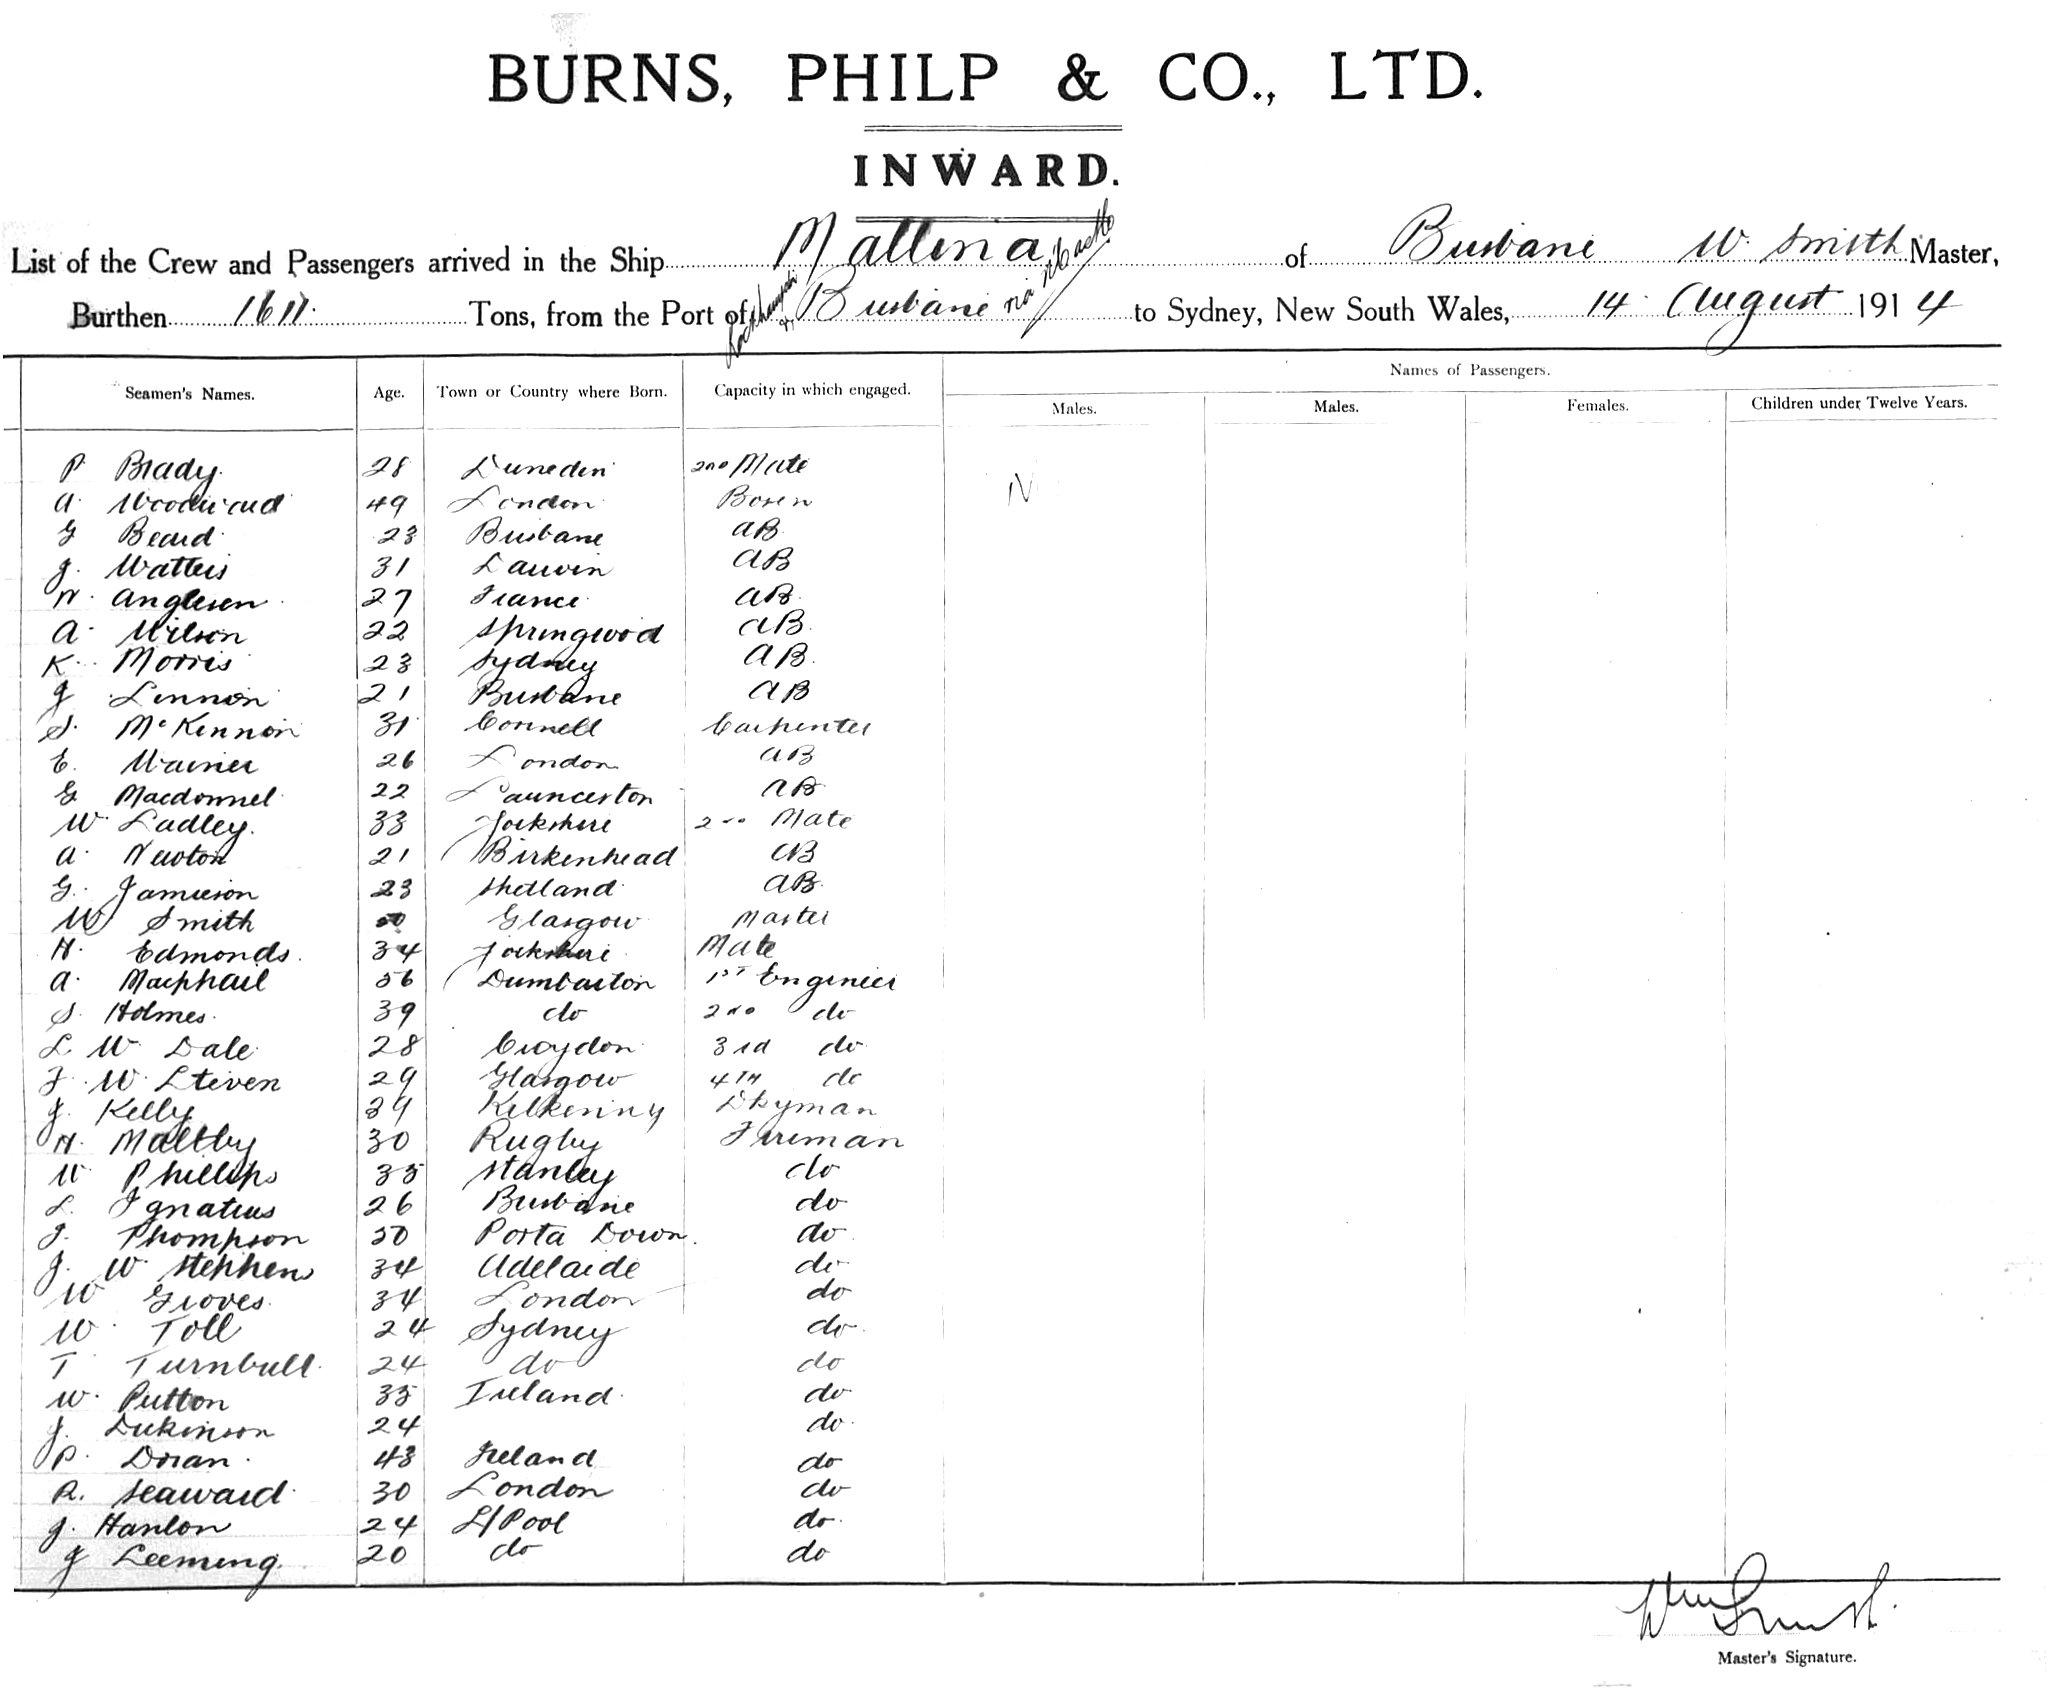 BURNS, PHILP & CO., LTD.
INWARD.
List of the Crew and Passengers arrived in the Ship Mallina of Brisbane W. Smith Master,
Burthen 1611 Tons, from the Port of Rockhampton & Brisbane via N Castle to Sydney, New South Wales, 14 August 1914
Names of Passengers.
Seamen's Names. Age. Town or Country where Born. Capacity in which engaged. Males. Males. Females. Children under Twelve Years.
P Brady 28 Dunedin 2nd Mate
A. Woodward 49 London Bosen
G Beard 23 Brisbane AB
J. Watters 31 AB
N. 27 France AB
A. Wilson 22 Springwood AB
K. Morris 23 Sydney AB
J Lennon 21 Brisbane AB
S. McKinnon 31 Cornwell Carpenter
E. Warner 26 London AB
G Macdonnel 22 Launceston AB
W Ladley 33 Yorkshire 2nd Mate
A. Newton 21 Birkenhead AB
G. Jamieson 23 Shetland AB
W Smith 50 Glasgow Master
H. Edmonds 34 Yorkshire Mate
A. Macphail 56 Dumbarton 1st Engineer
S. Holmes 39 do 2nd do
L. W. Dale 28 Croydon 3rd do
F. W. Steven 29 Glasgow 4TH do
J. Kelly 39 Kilkenny Dkyman
H. Maltby 30 Rugby Fireman
W Phillips 35 Stanley do
L. Ignatius 26 Brisbane do
J. Thompson 50 Porta Down do
J. W. Stephens 34 Adelaide do
W Groves 34 London do
W. Toll 24 Sydney do
T Turnbull 24 do do
W. Putton 35 Ireland do
J. Dickinson 24 do
P. Doran 43 Ireland do
R. Seaward 30 London do
J. Hanlon 24 L/Pool do
J Leeming 20 do do
Wm Smith
Master's Signature.